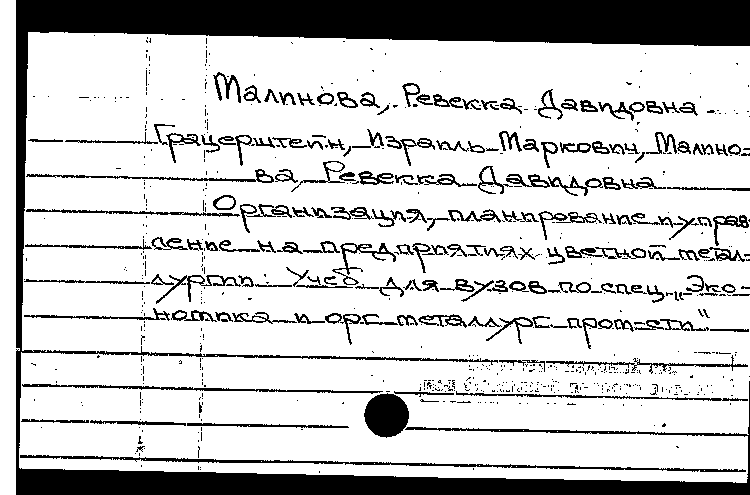 Малинова, Ревекка Давидовна.
Грацерштейн, Израиль Маркович, Малино-
ва, Ревекка Давидовна
Организация, планирование и управ-
ление на предприятиях цветной метал-
лургии: Учеб. для вузов по спец. „Эко-
номика и орг. металлург. пром-сти"